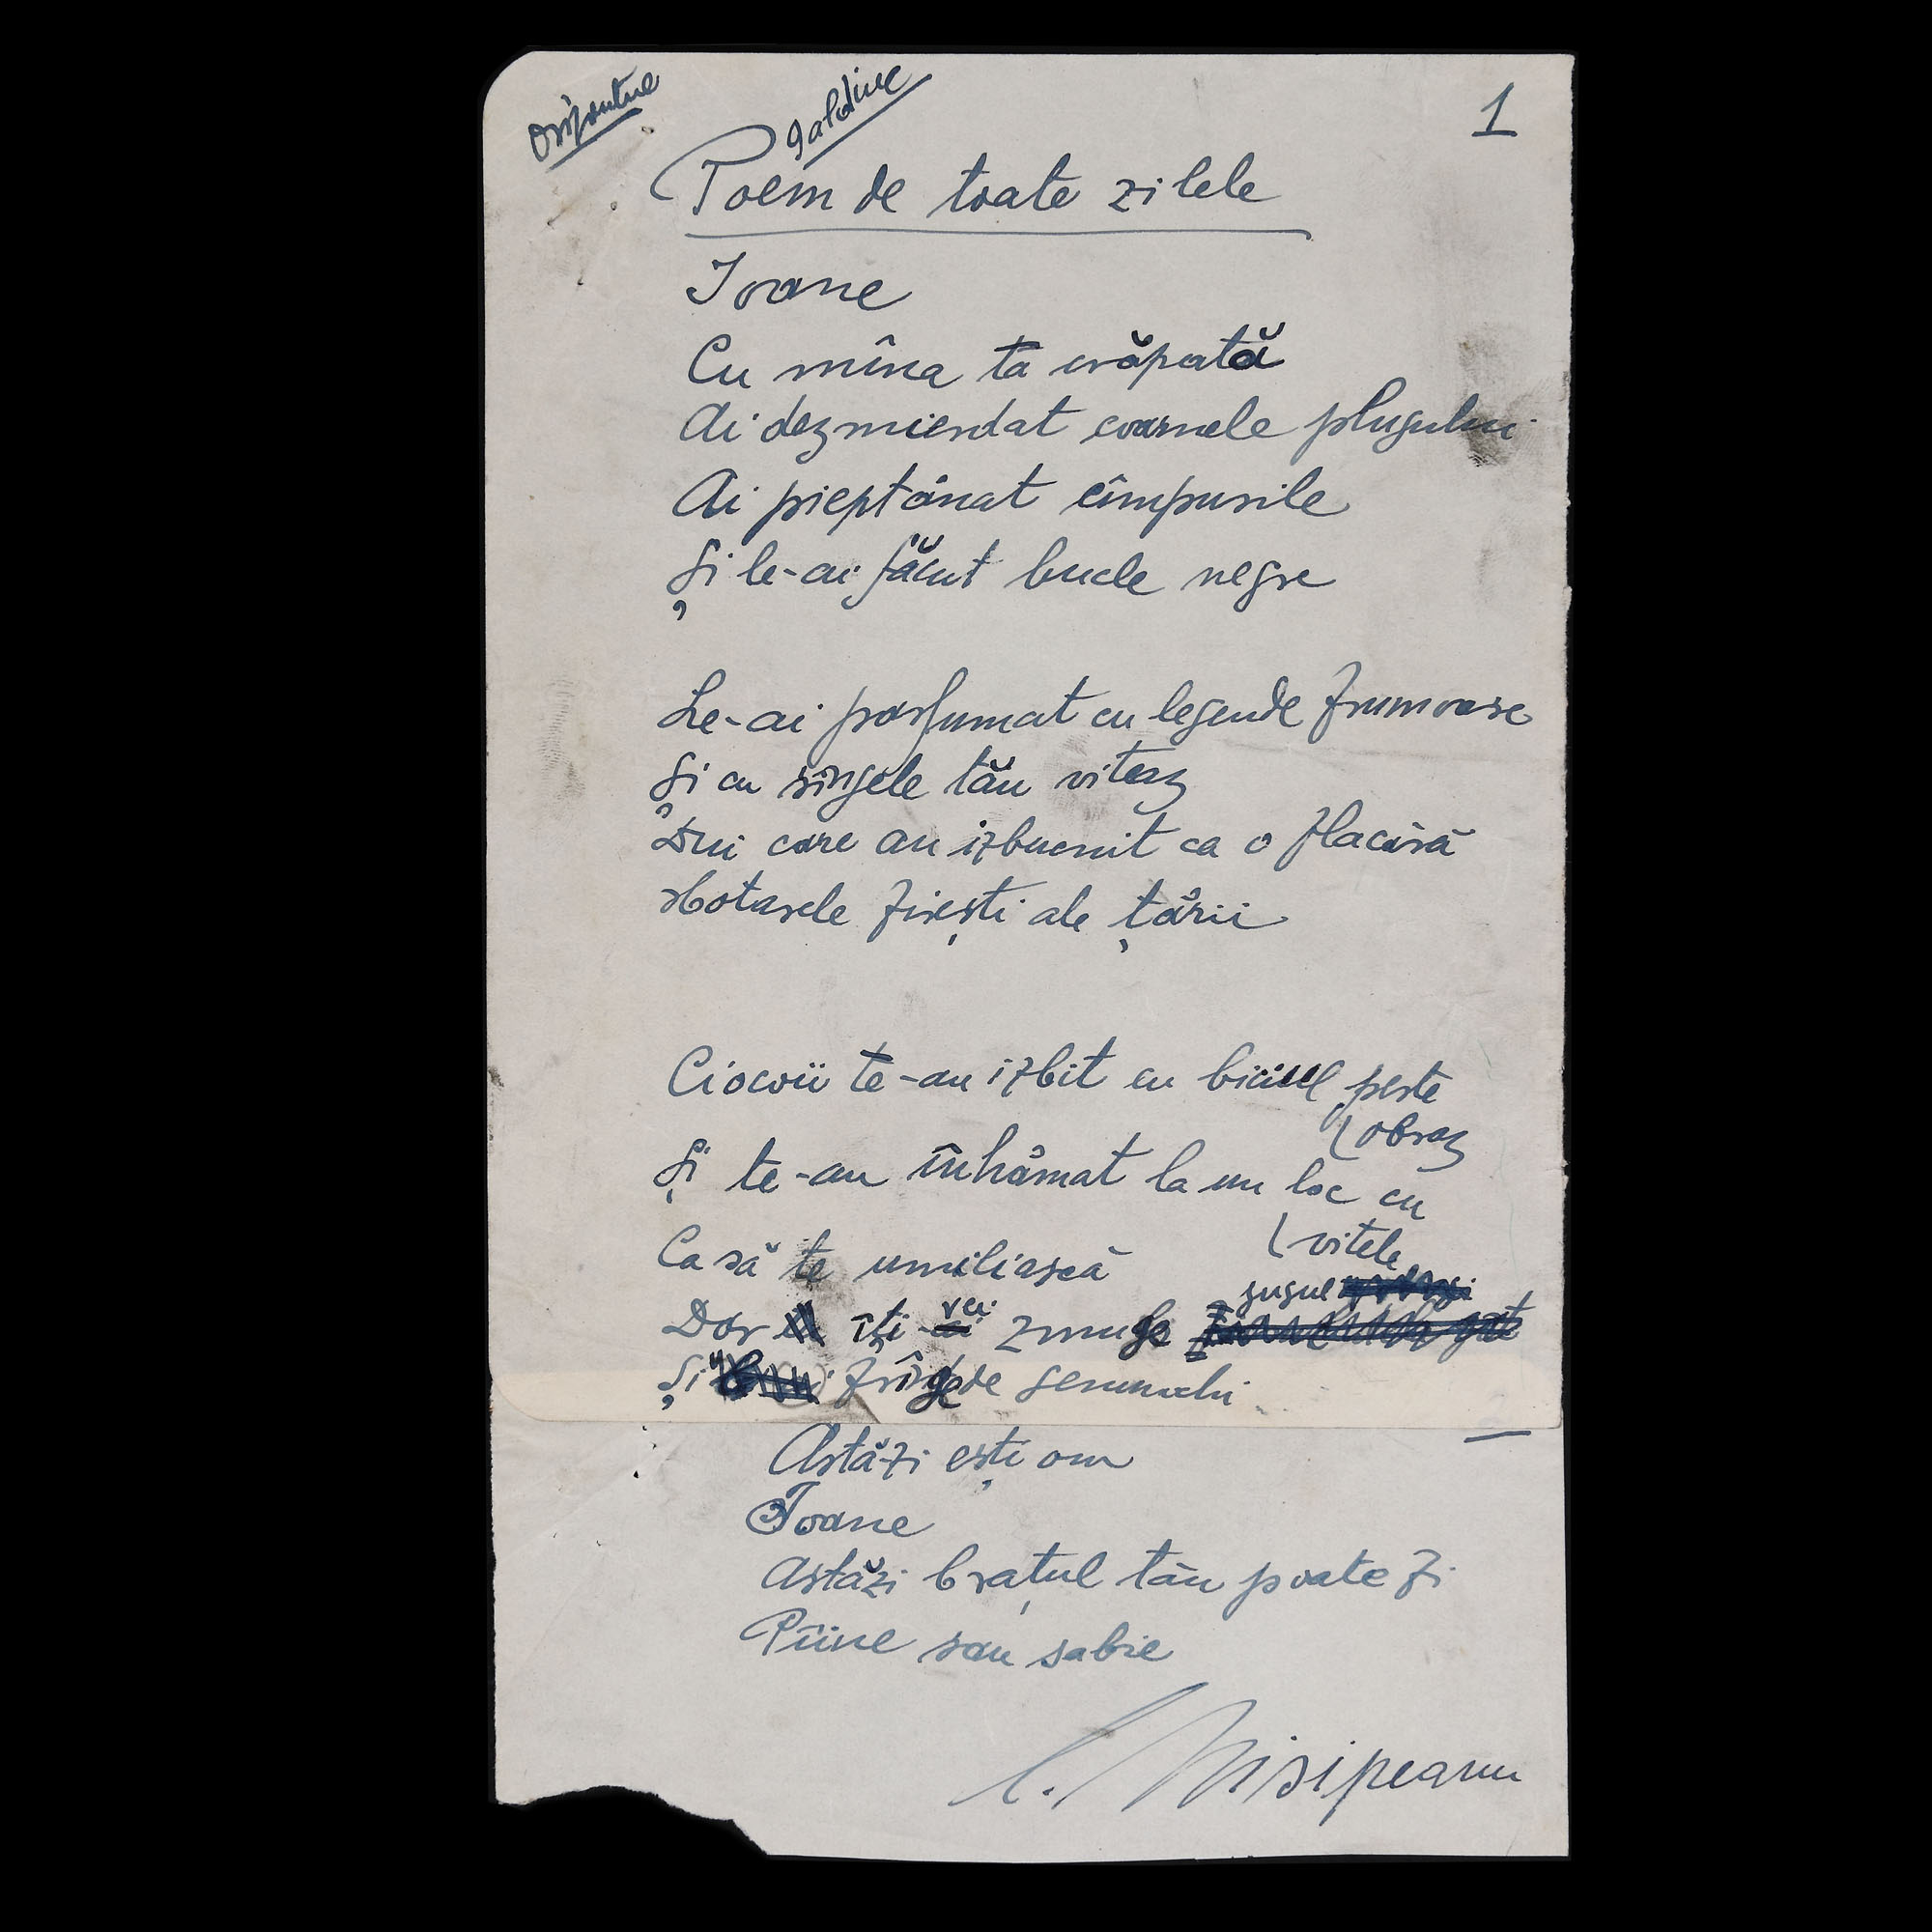 galdine
1
Poem de toate zilele
Ioane
Cu mîna ta crăpată
Ai dezmierdat coarnele plugului
Ai pieptănat cîmpurile
Și le-ai făcut bucle negre
Le-ai parfumat cu legende frumoase
Și cu sîngele tău viteaz
Din care au izbucnit ca o flacără
Hotarele firești ale țării
Ciocoii te-au izbit cu biciul peste
obraz
Și te-au înhămat la un loc cu
vitele
Ca să te umiliască
jugul
vei
Dar îți zmulge
Și frînge de genunchi
2
Astăzi ești om
Ioane
Astăzi brațul tău poate fi
Pîine sau sabie
C. Nisipeanu